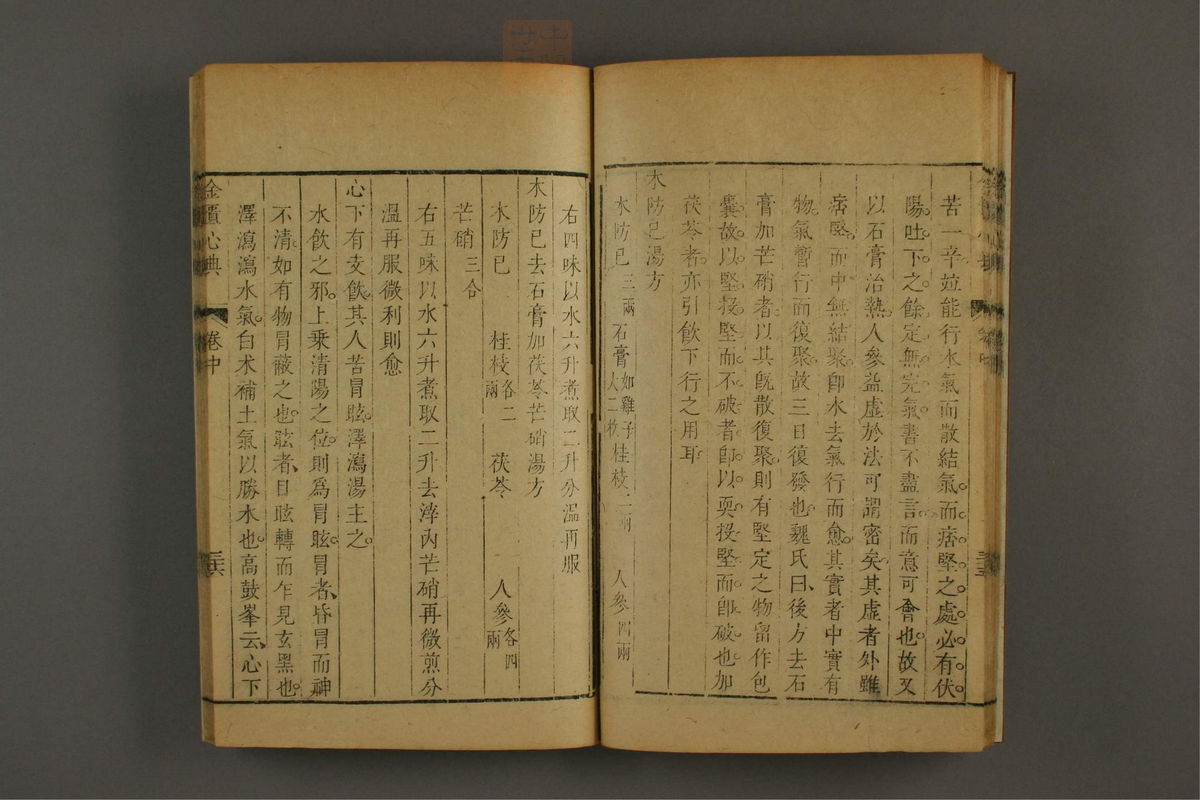 苦一辛竝能行水氣而散結氣而痞堅之處必有伏
陽吐下之餘定無完氣書不盡言而意可會也故又
以石膏治熱人參益虛於法可謂密矣其虛者外雖
痞堅而中無結聚卽水去氣行而愈其實者中實有
物氣暫行而復聚故三日復發也魏氏曰後方去石
膏加芒硝者以其旣散復聚則有堅定之物留作包
囊故以堅投堅而不破者卽以耎投堅而卽破也加
茯苓者亦引飮下行之用耳
木防已湯方
木防已三兩 石膏如雞子大二枚 桂枝二兩 人參四兩
右四味以水六升煮取二升分溫再服
木防已去石膏加茯苓芒硝湯方
木防已 桂枝各二兩 茯苓 人參各四兩
芒硝三合
右五味以水六升煮取二升去滓內芒硝再微煎分
溫再服微利則愈
心下有支飮其人苦冒眩澤瀉湯主之
水飮之邪上乘淸陽之位則爲冒眩冒者昏冒而神
不淸如有物冒蔽之也眩者目眩轉而乍見玄黑也
澤瀉瀉水氣白术補土氣以勝水也高鼓峯云心下
金匱心典 卷中 三六